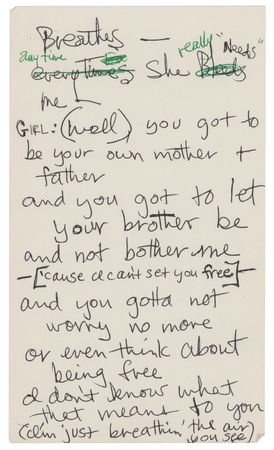 Breathes —
anytime really "Needs"
everytime She
me
GIRL: (well) you got to
be your own mother +
father
and you got to let
your brother be
and not bother me
- ['cause I can't set you free] -
and you gotta not
worry no more
or even think about
being free
I don't know what
that means to you
(I'm just breathin' the air)
you see)